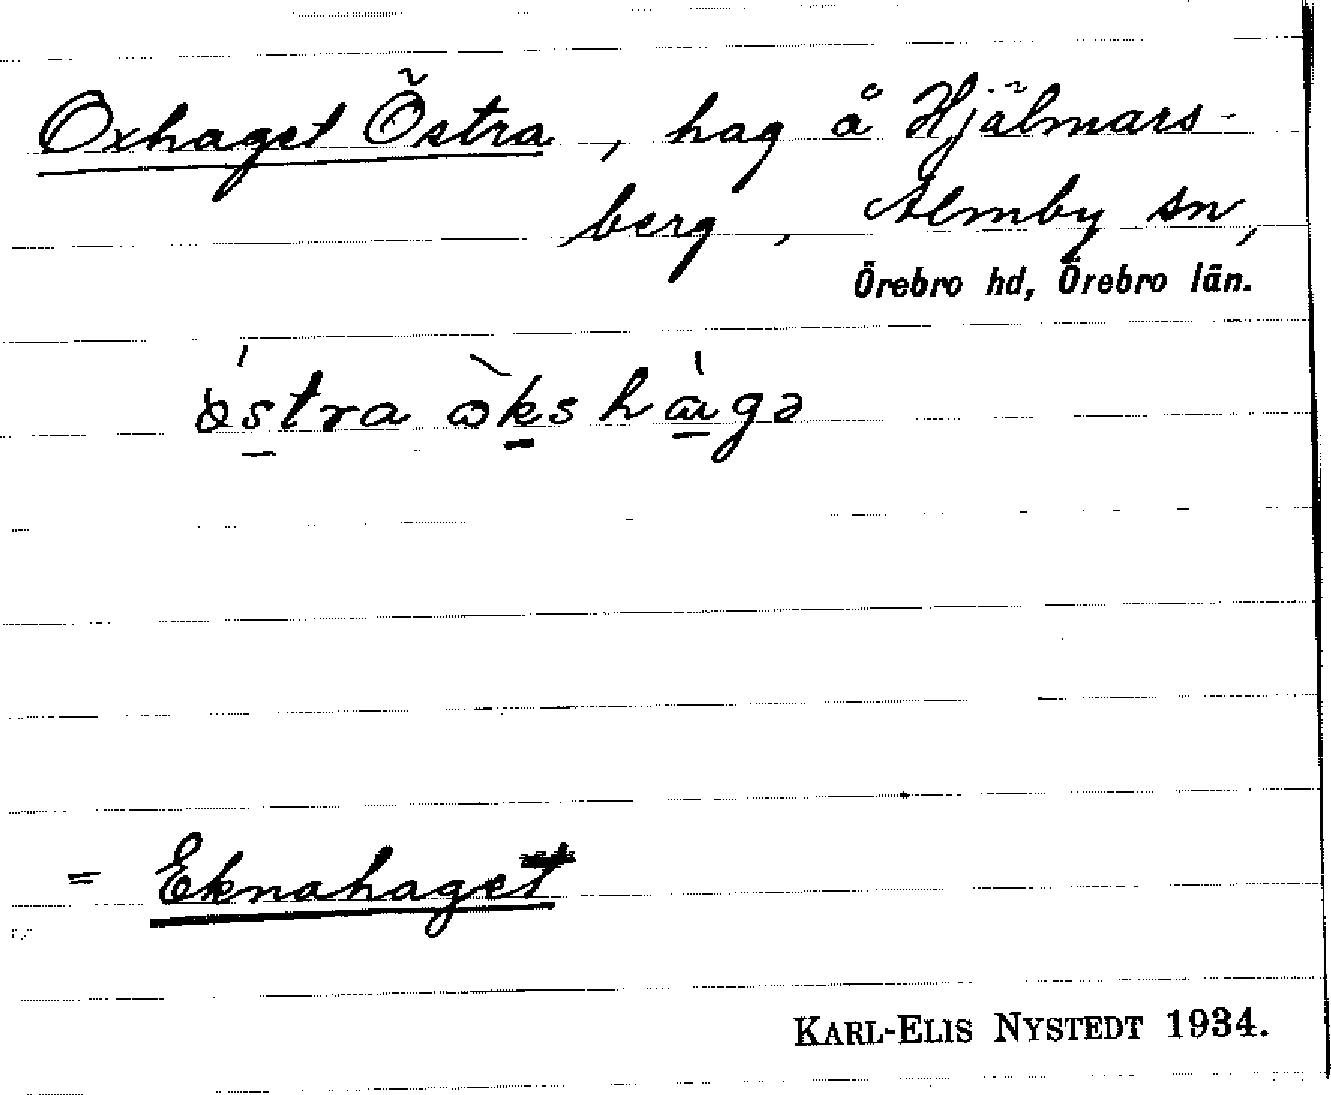 Oxhaget Östra, hag å Hjälmars-
berg, Almby sn,
Örebro hd, Örebro län.
östra ɷkshaga
= Eknahaget
KARL-ELIS NYSTEDT 1934.